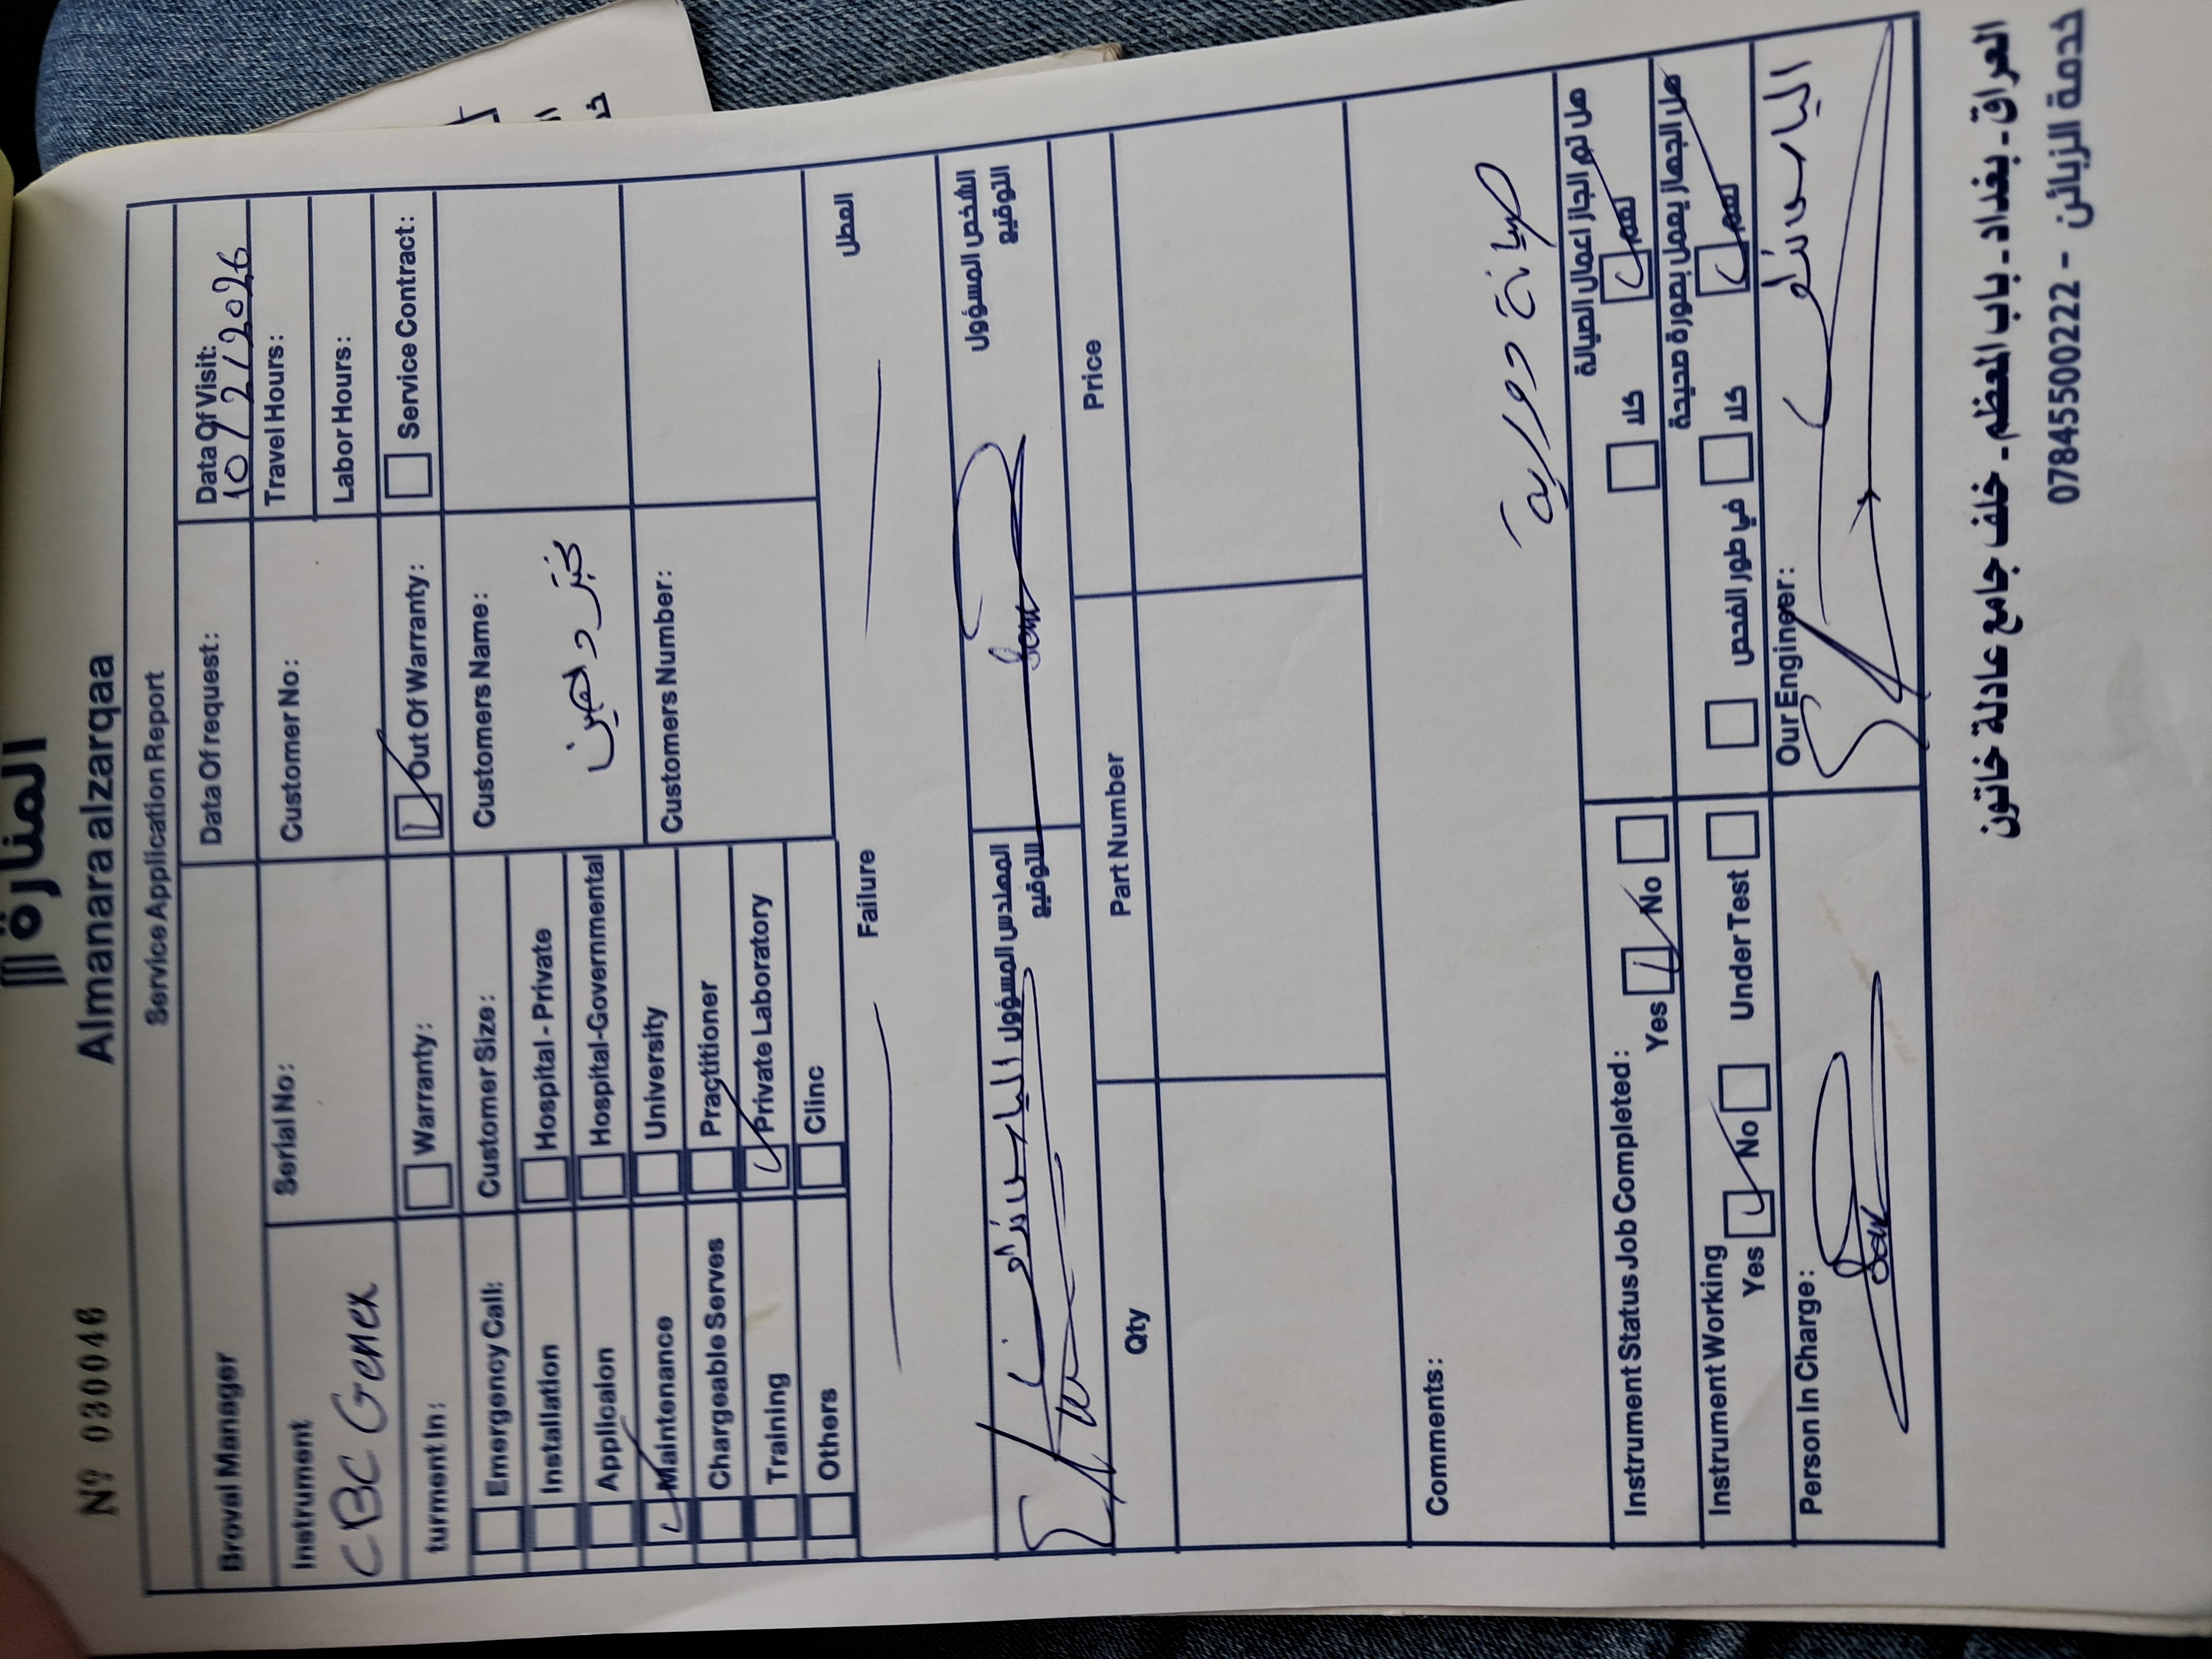 المنارة
Almanara alzarqaa
Nº 030046
Service Application Report
Broval Manager
Data Of request:
Data Of Visit:
10/2/2026
Instrument
CBC Genex
Serial No:
Customer No:
Travel Hours:
Labor Hours:
turment In:
Warranty:
Out Of Warranty:
Service Contract:
Emergency Call:
Customer Size:
Customers Name:
Installation
Hospital - Private
Applicaion
Hospital-Governmental
مختبر
Maintenance
University
Customers Number:
Chargeable Serves
Practitioner
Training
Private Laboratory
Others
Clinc
Failure
العطل
المهندس المسؤول
التوقيع
الشخص المسؤول
التوقيع
Qty
Part Number
Price
Comments:
صيانة دورية
Instrument Status Job Completed:
Yes
No
هل تم انجاز اعمال الصيانة
كلا
نعم
Instrument Working
Yes
No
Under Test
هل الجهاز يعمل بصورة صحيحة
في طور الفحص
كلا
نعم
Person In Charge:
Our Engineer:
العراق - بغداد - باب المعظم - خلف جامع عادلة خاتون
خدمة الزبائن - 07845500222